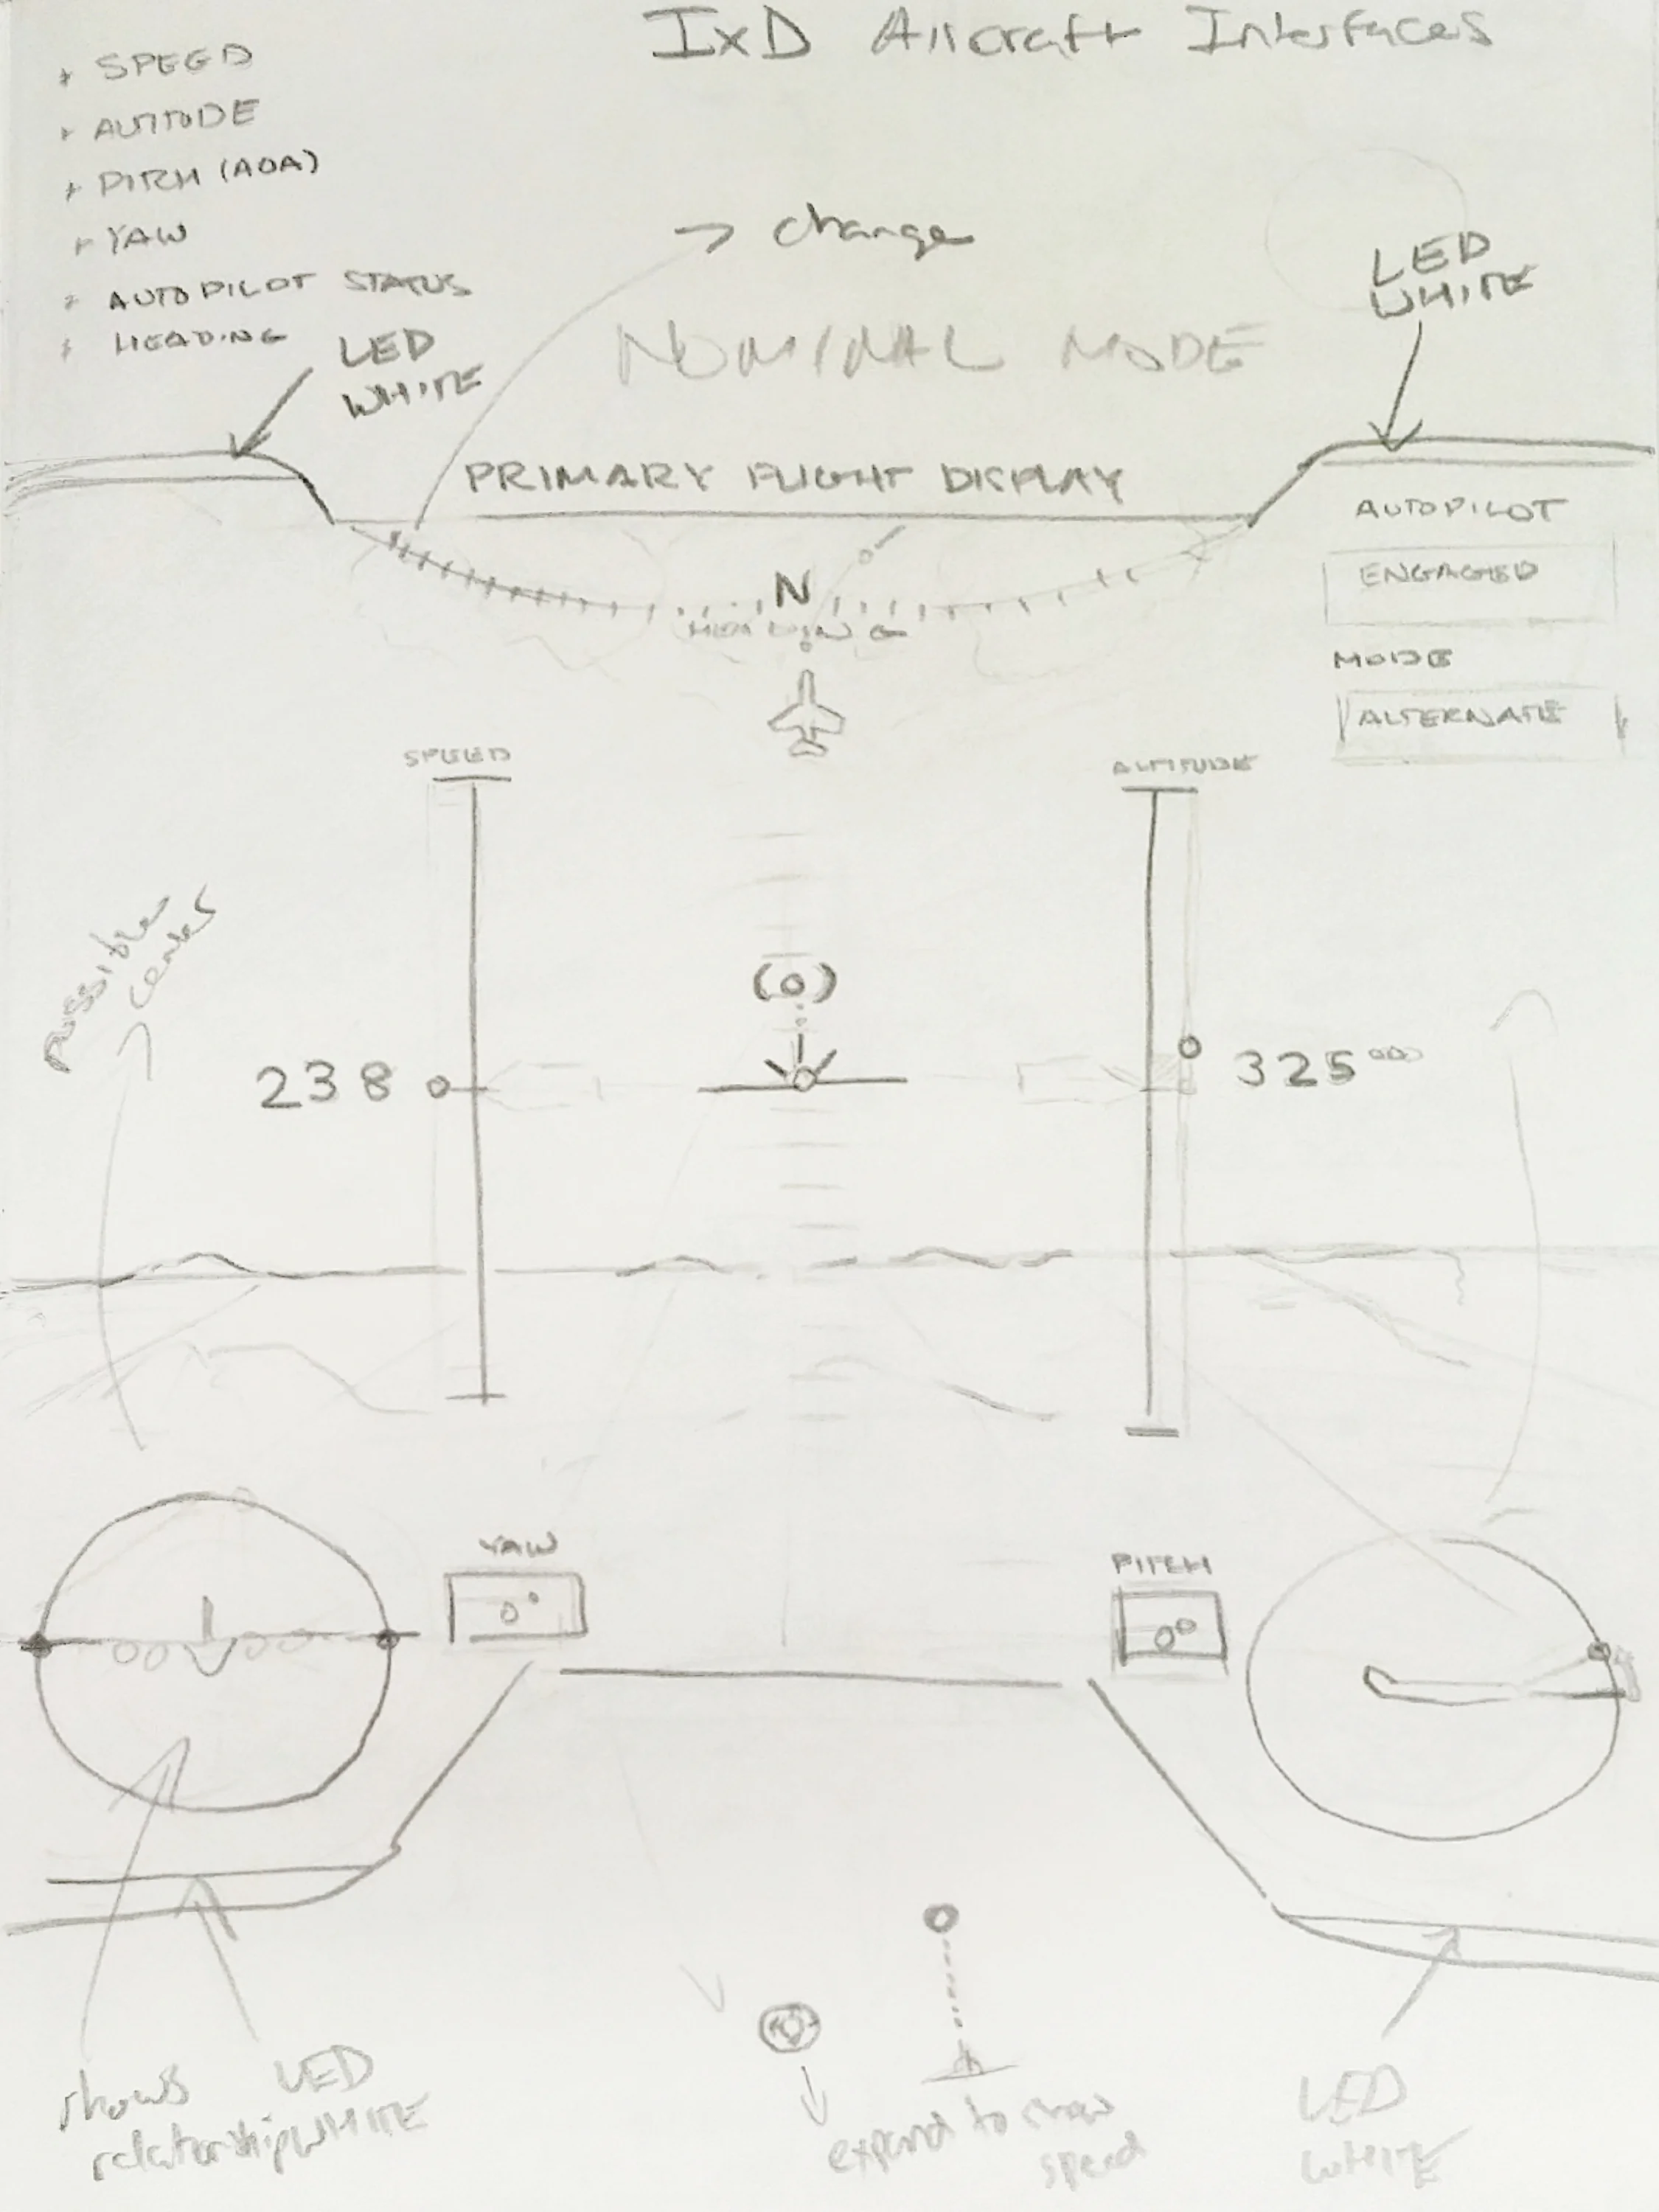 IxD Aircraft Interfaces
+ SPEED
+ ALTITUDE
+ PITCH (AOA)
+ YAW
+ AUTOPILOT STATUS
+ HEADING
→ change
LED
WHITE
NOMINAL MODE
LED
WHITE
PRIMARY FLIGHT DISPLAY
AUTOPILOT
ENGAGED
MODE
ALTERNATE
N
HEADING
SPEED
ALTITUDE
possible
center
238
325000
YAW
0°
PITCH
0°
shows
relationship
LED
WHITE
expand to show
speed
LED
WHITE